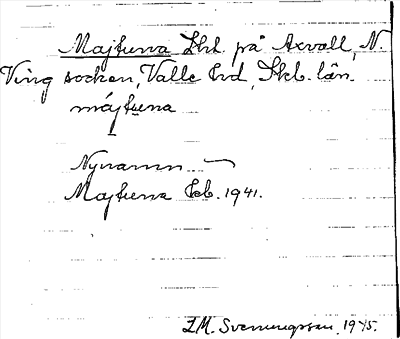 Majtuna Lht. på Axvall, N.
Ving socken, Valle hd, Skb. län.
májtuna
Nynamn
Majtuna Eb. 1941.
L.M. Svenungsson. 1945.